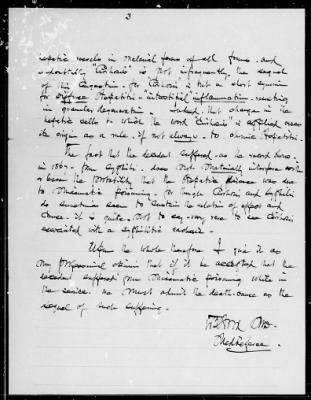 3
hepatic vessels in malarial fevers of all forms - and
reportedly "Cirrhosis" is not infrequently the sequel
of this Congestion - for Cirrhosis is but a short synonym
for diffuse Hepatitis - interstitial inflammation - resulting
in granular degeneration - indeed that change in the
hepatic cells to which the word "Cirrhosis" is applied owes
its origin as a rule - if not always - to chronic hepatitis -
The fact that the decedent suffered - as the record shows -
in 1864 - from Syphilis - does not materially interfere with
or lessen the probability that the Hepatic disease was due
to Rheumatic poisoning - for though Cirrhosis and Syphilis
do sometimes seem to sustain the relation of effect and
Cause - it is quite - not to say - very rare to see Cirrhosis
associated with a syphilitic cachexia -
Upon the whole therefore I give it as
my professional opinion that if it be accepted that the
decedent suffered from Rheumatic poisoning while in
the service - we must admit the death-cause as the
sequel of such suffering -
Med Referee -